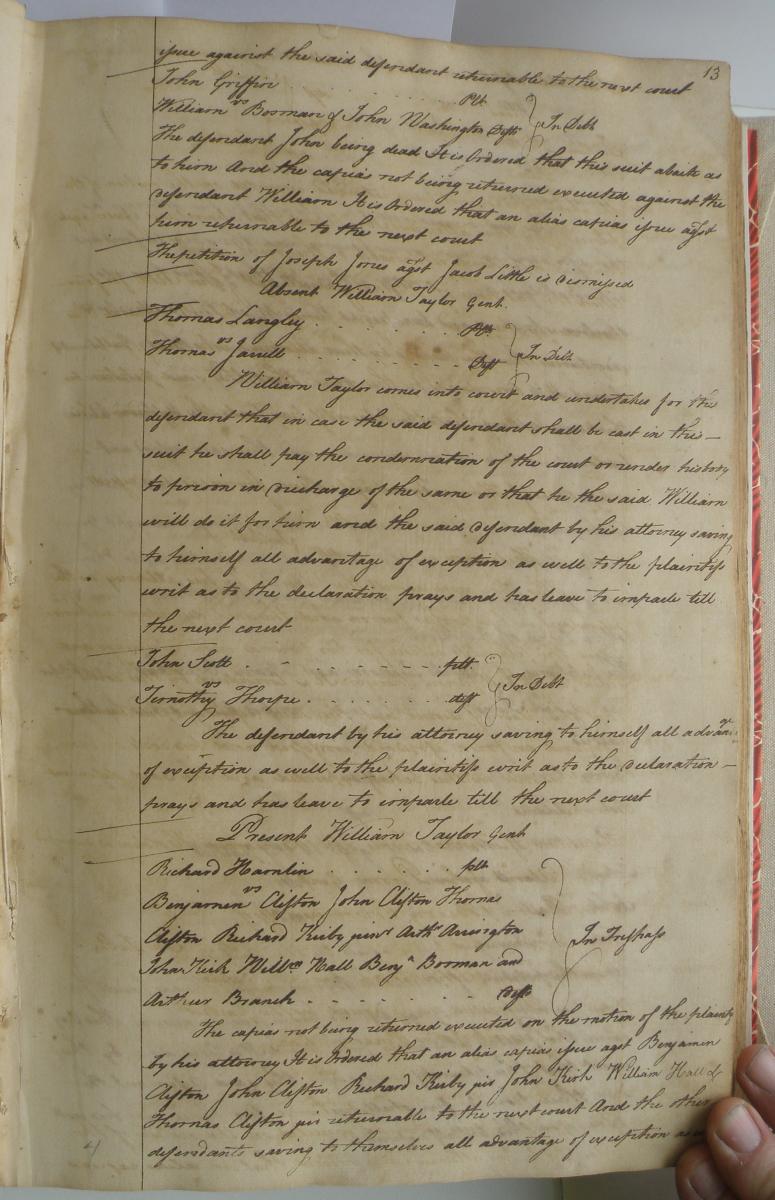 13
issue against the said defendant returnable to the next court
John Griffin . . . . . . . . . Plt
vs In Debt
William Bosman & John Washington Defts
The defendant John being dead It is Ordered that this suit abate as
to him And the capias not being returned executed against the
defendant William It is Ordered that an alias capias issue agst
him returnable to the next court
The petition of Joseph Jones agst Jacob Little is dismissed
Absent William Taylor Gent.
Thomas Langley . . . . . . . . Plt
vs In Debt
Thomas Jarrell . . . . . . . . . Deft
William Taylor comes into court and undertakes for the
defendant that in case the said defendant shall be cast in this —
suit he shall pay the condemnation of the court or render his body
to prison in discharge of the same or that he the said William
will do it for him and the said defendant by his attorney saving
to himself all advantage of exception as well to the plaintifs
writ as to the declaration prays and has leave to imparle till
the next court
John Scott . - . . . . - - - . pltt
vs In Debt
Timothy Thorpe . . . . . . . deft
The defendant by his attorney saving to himself all advan
of exception as well to the plaintifs writ as to the declaration —
prays and has leave to imparle till the next court
Present William Taylor Gent
Richard Hamlin . . . . . . plt
vs
Benjamen Clifton John Clifton Thomas
Clifton Richard Kirby junr Arthr Arrington
In Trespass
John Kirk Willm Hall Benja Borman and
Arthur Branch . . . . . . . Defts
The capias not being returned executed on the motion of the plaintif
by his attorney It is Ordered that an alias capias issue agst Benjamen
Clifton John Clifton Richard Kirby jur John Kirk William Hall &
Thomas Clifton jur returnable to the next court And the other
defendants saving to themselves all advantage of exception as